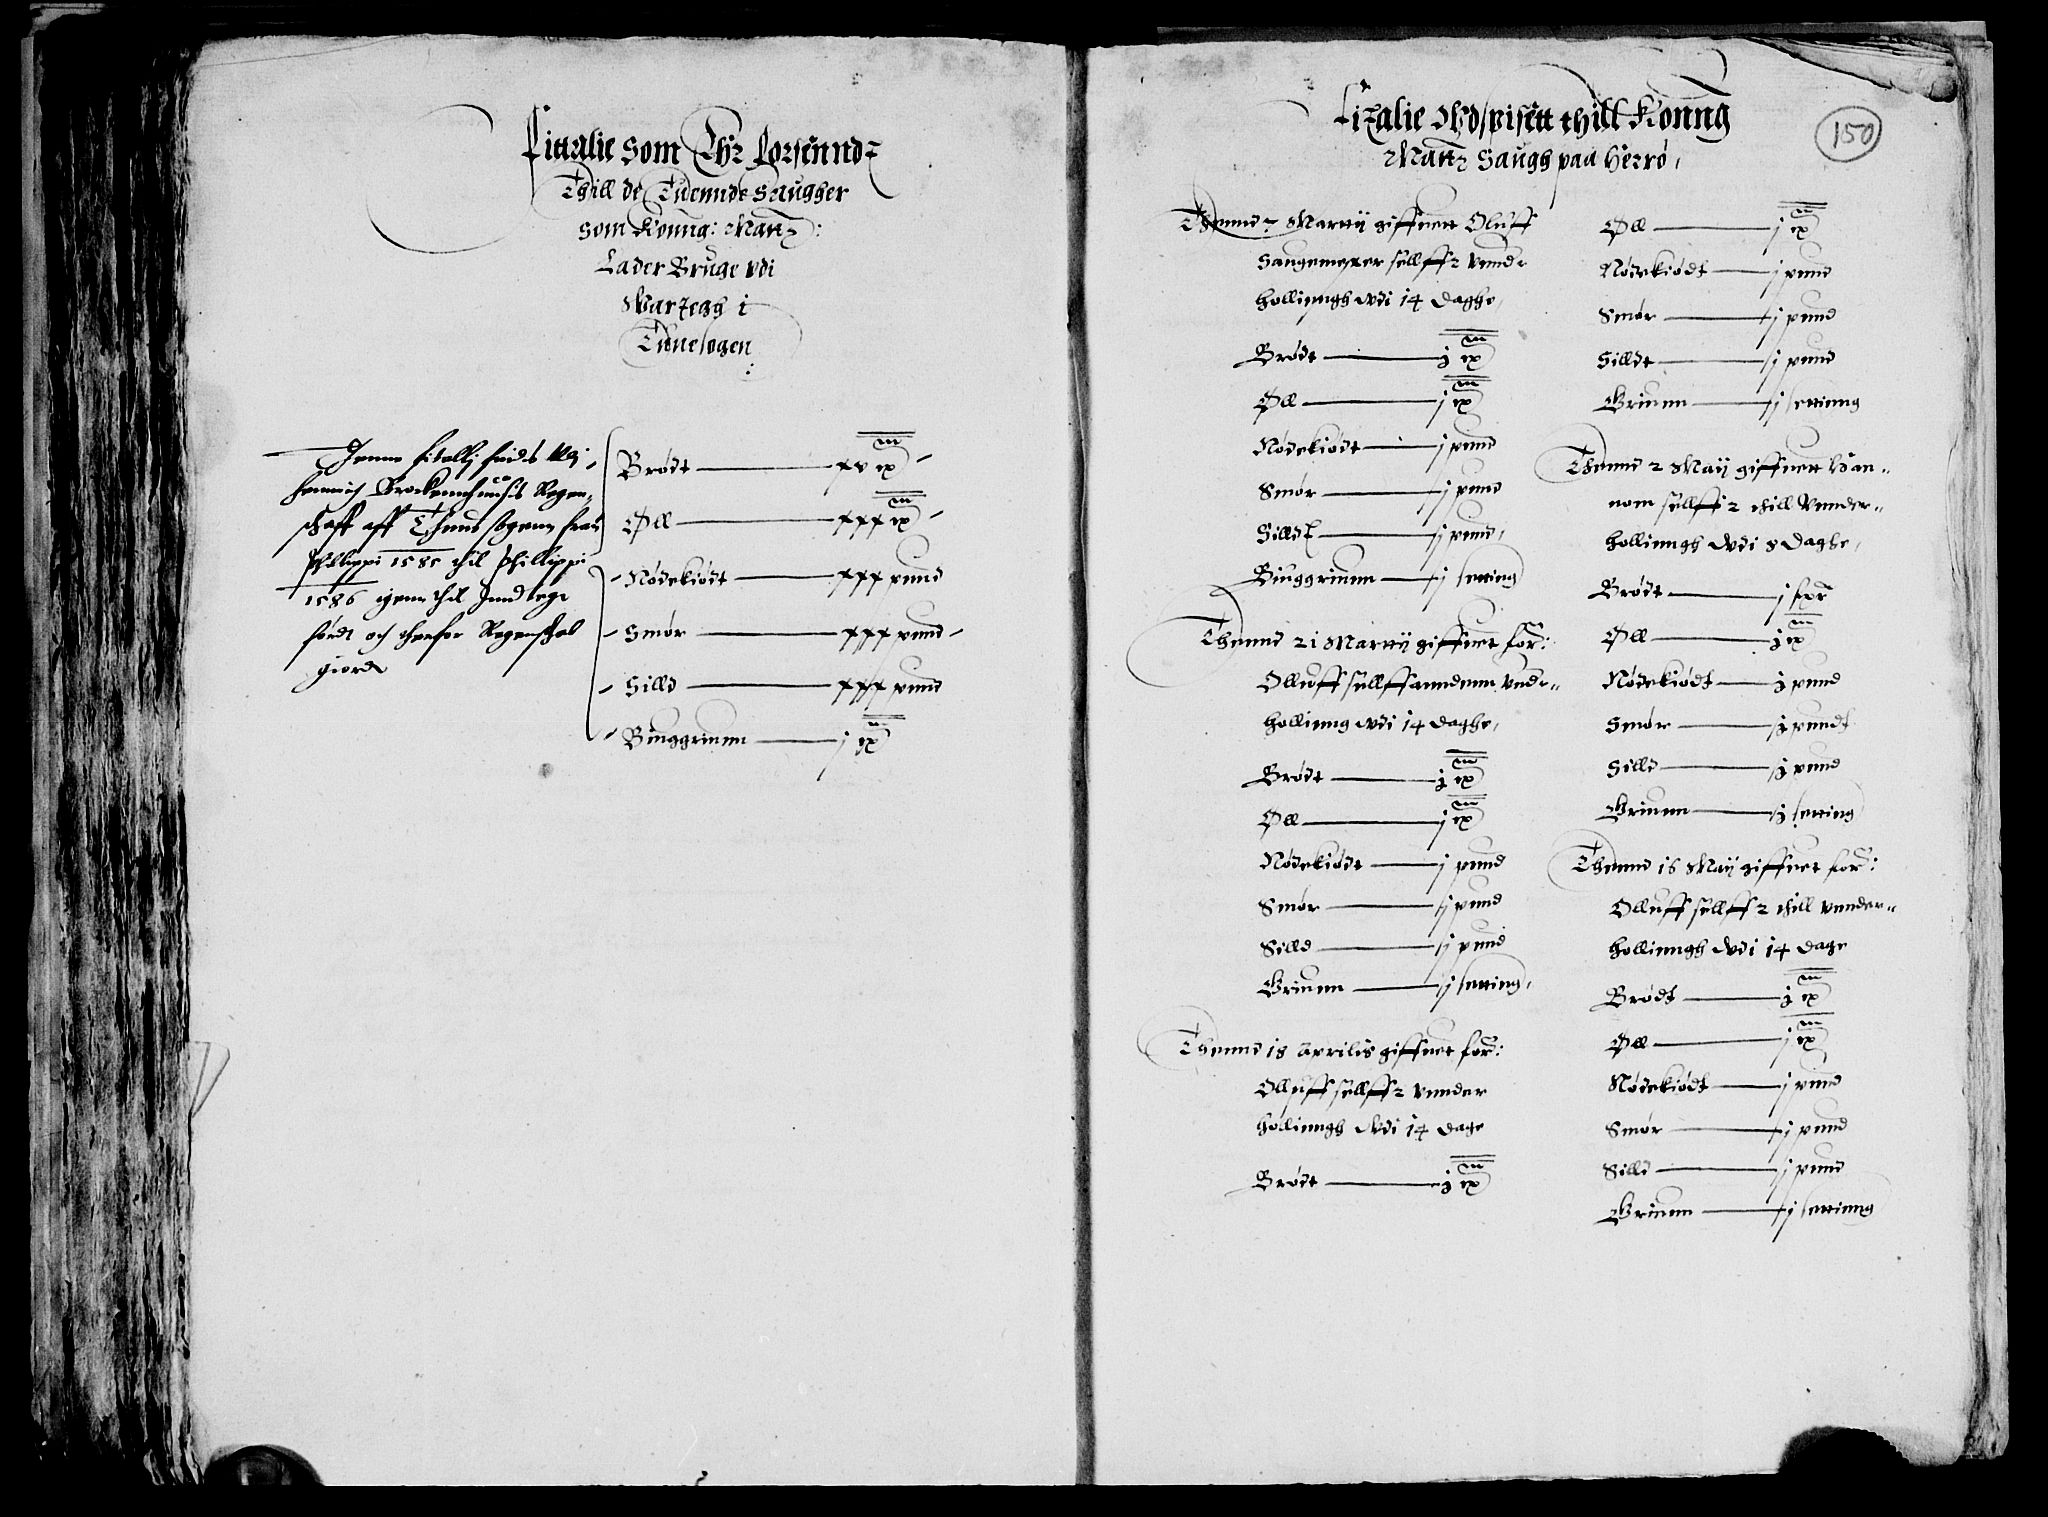 Fittalie som Ehr Forsenndt
Thill de Tuennde Saugher
som Konng: Matt:
Lader Bruge vdi
Warteigh i
Tune sogen
Jenne fitalli findis udj
Hennrich Brockennhuusis Regen-
schaff aff Thune sogenn fraa
Philippi 1585 thil Phillippi
1586 igenn thil Inndtegt
førdt och therfor Regenschab
giordt
Brødt xv
Øll xxx
Nødekiødt xxx pund
Smør xxx pund
Silld xxx pund
Biuggriunn j
150
Fitalie Udspisett thill Konng
Matt Saugh paa Herrø
Thennd 7 Martij giffuett Oluff
Saugemester sellff 2 vnnder
hollinngh Udi 14 Daghe
Brødt j
Øll j
Nødekiødt j pund
Smør j pund
Silldt j pund
Biuggriunn j setting
Thennd 21 Martij giffuet for:
Olluff sellff anndenn vnder-
hollinng Udi 14 daghe
Brødt j
Øll j
Nødekiødt j pund
Smør j pund
Silld j pund
Griunn j setting
Thennd 18 Aprilis giffuet for:
Olluff sellff 2 vnnder
hollinngh Udi 14 Dage
Brødt j
Øll j
Nødekiødt j pund
Smør j pund
Silldt j pund
Griunn j settinng
Thennd 2 Maij giffuett han-
nom sellff 2 thill Vnnder-
hollinngh Udi 8 Daghe
Brødt j
Øll j
Nødekiødt j pund
Smør j pundt
Silld j pund
Griunn j setting
Thennd 16 Maij giffuet for:
Olluff sellff 2 thill vnnder-
hollinngh Udi 14 Dage
Brødt j
Øll j
Nødekiødt j pund
Smør j pund
Silld j pund
Griunn j settinng